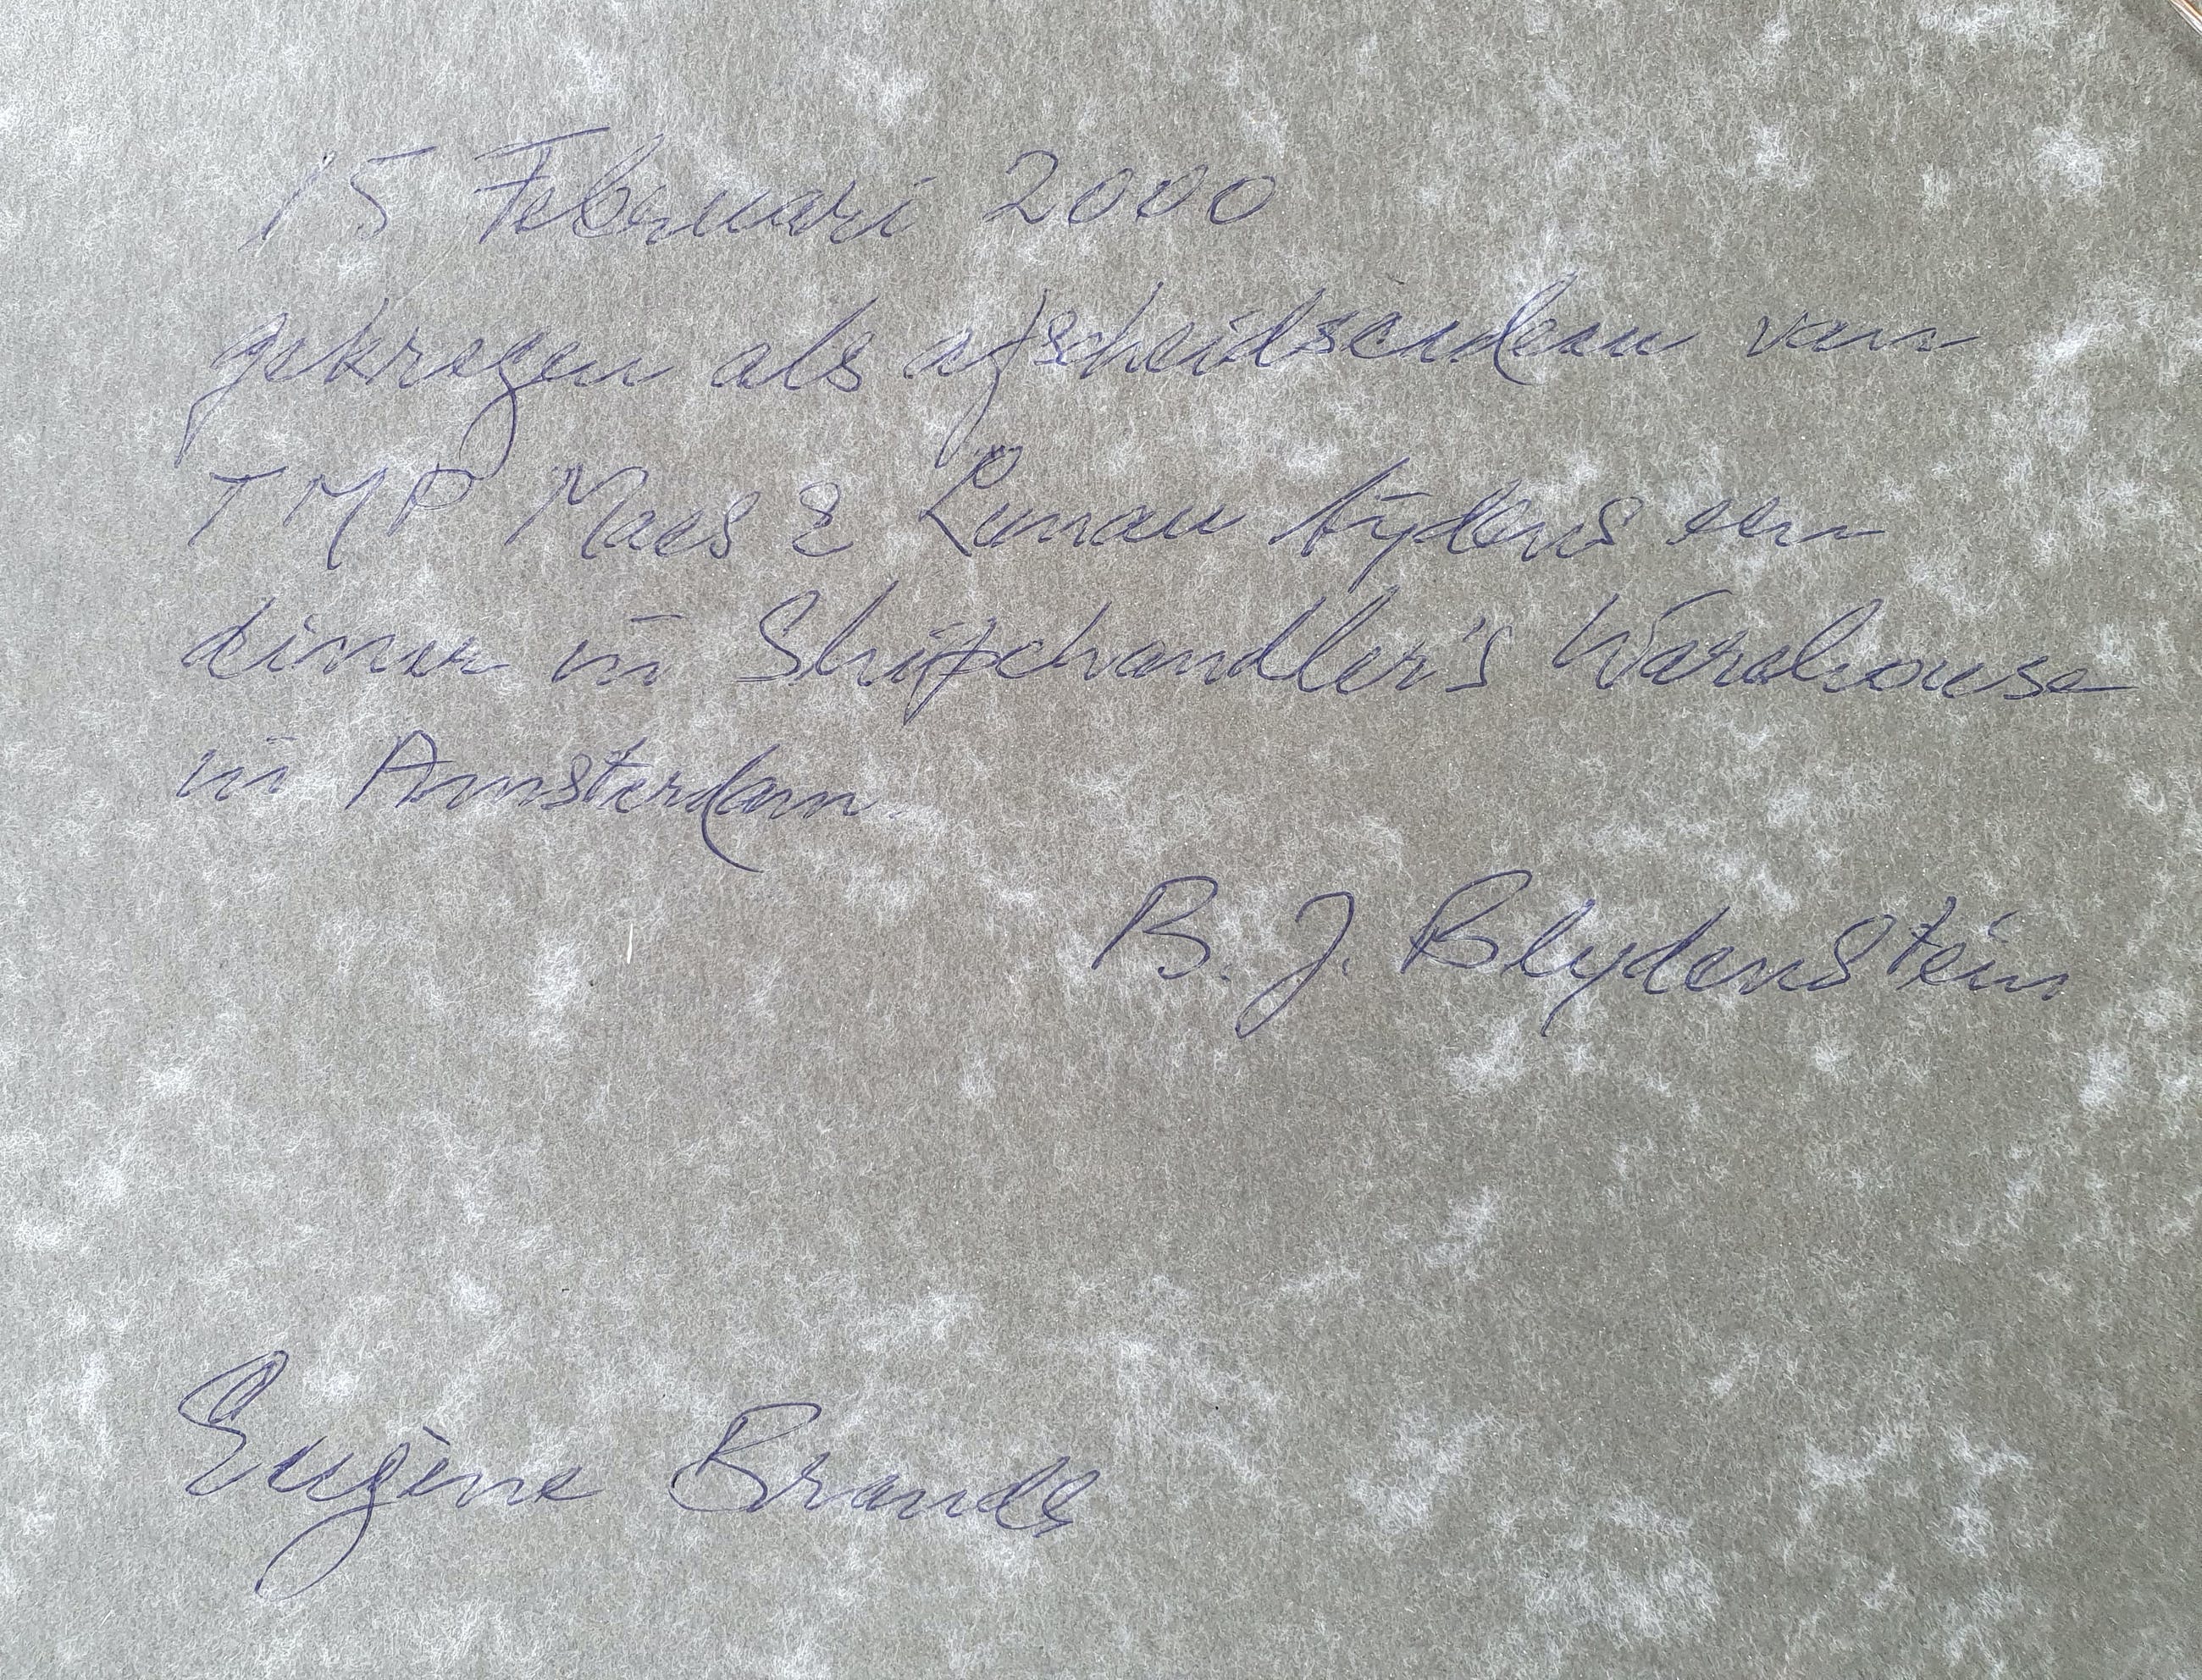 15 Februari 2000
gekregen als afscheidscadeau van
TMP Maes & Lunau tijdens een
diner in Shipchandler's Warehouse
in Amsterdam.
B. J. Blydenstein
Eugène Brands